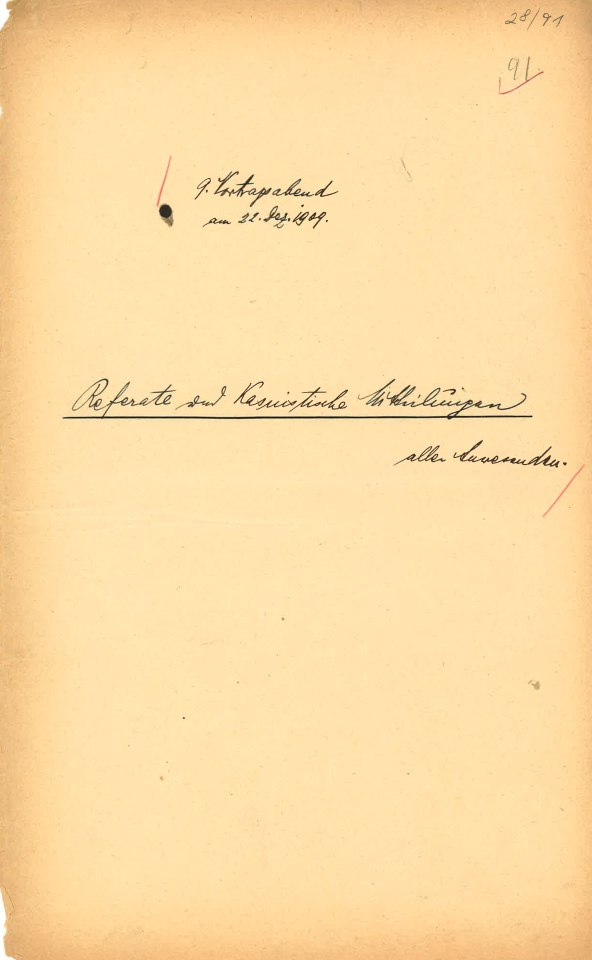 28/91
91
9. Vortragsabend
am 22. Dez. 1909.
Referate und Kasuistische Mitteilungen
aller Anwesenden.